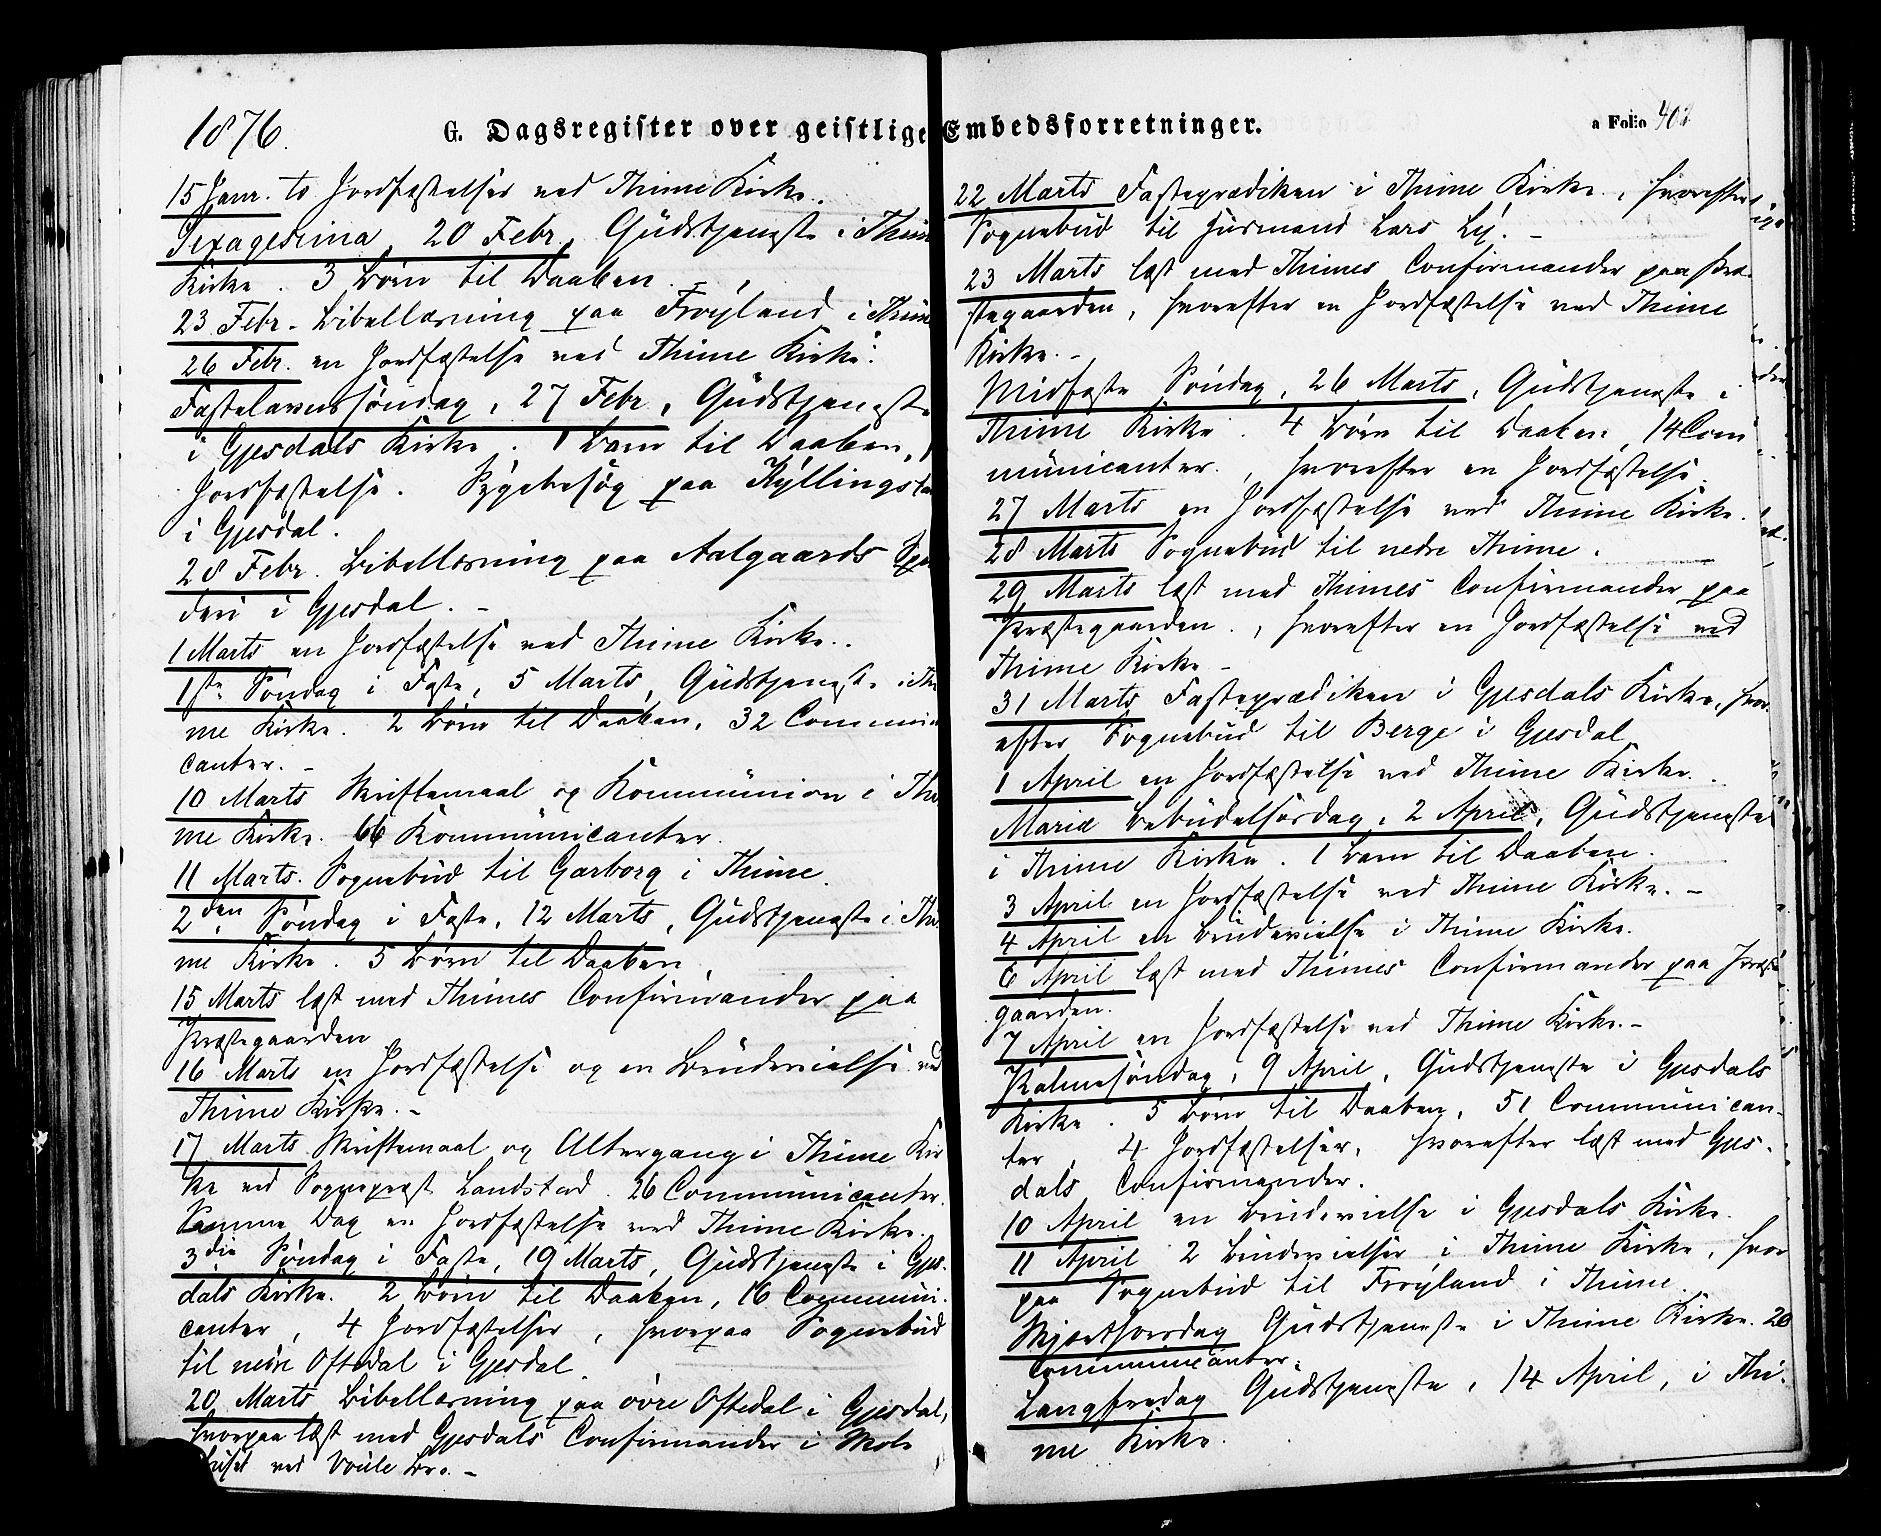 1876.
G. Dagsregister over geistlige Embedsforretninger.
a Folio
15 Janr. to Jordfæstelser ved Thime Kirke.
Sexagesima, 20 Febr, Gudstjeneste i Thime
Kirke. 3 Børn til Daaben.
23 Febr. Bibellæsning paa Frøyland i Thime
26 Febr. en Jordfæstelse ved Thime Kirke.
Fastelavenssøndag, 27 Febr, Gudstjeneste
i Gjesdals Kirke. 1 Barn til Daaben, 1
Jordfæstelse. Sygebesøg paa Kyllingstad
i Gjesdal.
28 Febr. Bibellæsning paa Aalgaards Spin
deri i Gjesdal. -
1 Marts en Jordfæstelse ved Thime Kirke.
1ste Søndag i Faste, 5 Marts, Gudstjeneste i Thi
me Kirke. 2 Børn til Daaben, 32 Communi
canter. -
10 Marts Skriftemaal og Kommunion i Thi
me Kirke. 66 Kommunicanter.
11 Marts. Sognebud til Garborg i Thime.
2den Søndag i Faste, 12 Marts, Gudstjeneste i Thi
me Kirke. 5 Børn til Daaben.
15 Marts læst med Thimes Confirmander paa
Præstegaarden
16 Marts en Jordfæstelse og en Brudevielse ved
Thime Kirke. -
17 Marts Skriftemaal og Altergang i Thime Kir
ke ved Sognepræst Landstad. 26 Communicanter.
Samme Dag en Jordfæstelse ved Thime Kirke.
3die Søndag i Faste, 19 Marts, Gudstjeneste i Gjes-
dals Kirke. 2 Børn til Daaben, 16 Communi-
canter, 4 Jordfæstelser, hvorpaa Sognebud
til nedre Oftedal i Gjesdal.
20 Marts Bibellæsning paa øvre Oftedal i Gjesdal,
hvorpaa læst med Gjesdals Confirmander i Skole
huset ved
22 Marts Fasteprædiken i Thime Kirke, hvorefter
Sognebud til Husmand Lars Ly. -
23 Marts læst med Thimes Confirmander paa Præ-
stegaarden, hvorefter en Jordfæstelse ved Thime
Kirke. -
Midfaste Søndag, 26 Marts, Gudstjeneste i
Thime Kirke. 4 Børn til Daaben, 14 Com
municanter, hvorefter en Jordfæstelse.
27 Marts en Jordfæstelse ved Thime Kirke.
28 Marts Sognebud til nedre Thime.
29 Marts læst med Thimes Confirmander paa
Præstegaarden, hvorefter en Jordfæstelse ved
Thime Kirke -
31 Marts Fasteprædiken i Gjesdals Kirke, hvor-
efter Sognebud til Berge i Gjesdal
1 April en Jordfæstelse ved Thime Kirke.
Mariæ Bebudelsesdag, 2 April, Gudstjeneste
i Thime Kirke. 1 Barn til Daaben.
3 April en Jordfæstelse ved Thime Kirke. -
4 April en Brudevielse i Thime Kirke.
6 April læst med Thimes Confirmander paa Præste
gaarden.
7 April en Jordfæstelse ved Thime Kirke. -
Palmesøndag, 9 April, Gudstjeneste i Gjesdals
Kirke. 5 Børn til Daaben, 51 Communican-
ter, 4 Jordfæstelser, hvorefter læst med Gjes-
dals Confirmander.
10 April en Brudevielse i Gjesdals Kirke.
11 April 2 Brudevielser i Thime Kirke, hvor
paa Sognebud til Frøyland i Thime.
Skjærthorsdag Gudstjeneste i Thime Kirke. 20
Communicanter.
Langfredag Gudstjeneste, 14 April, i Thi-
me Kirke.